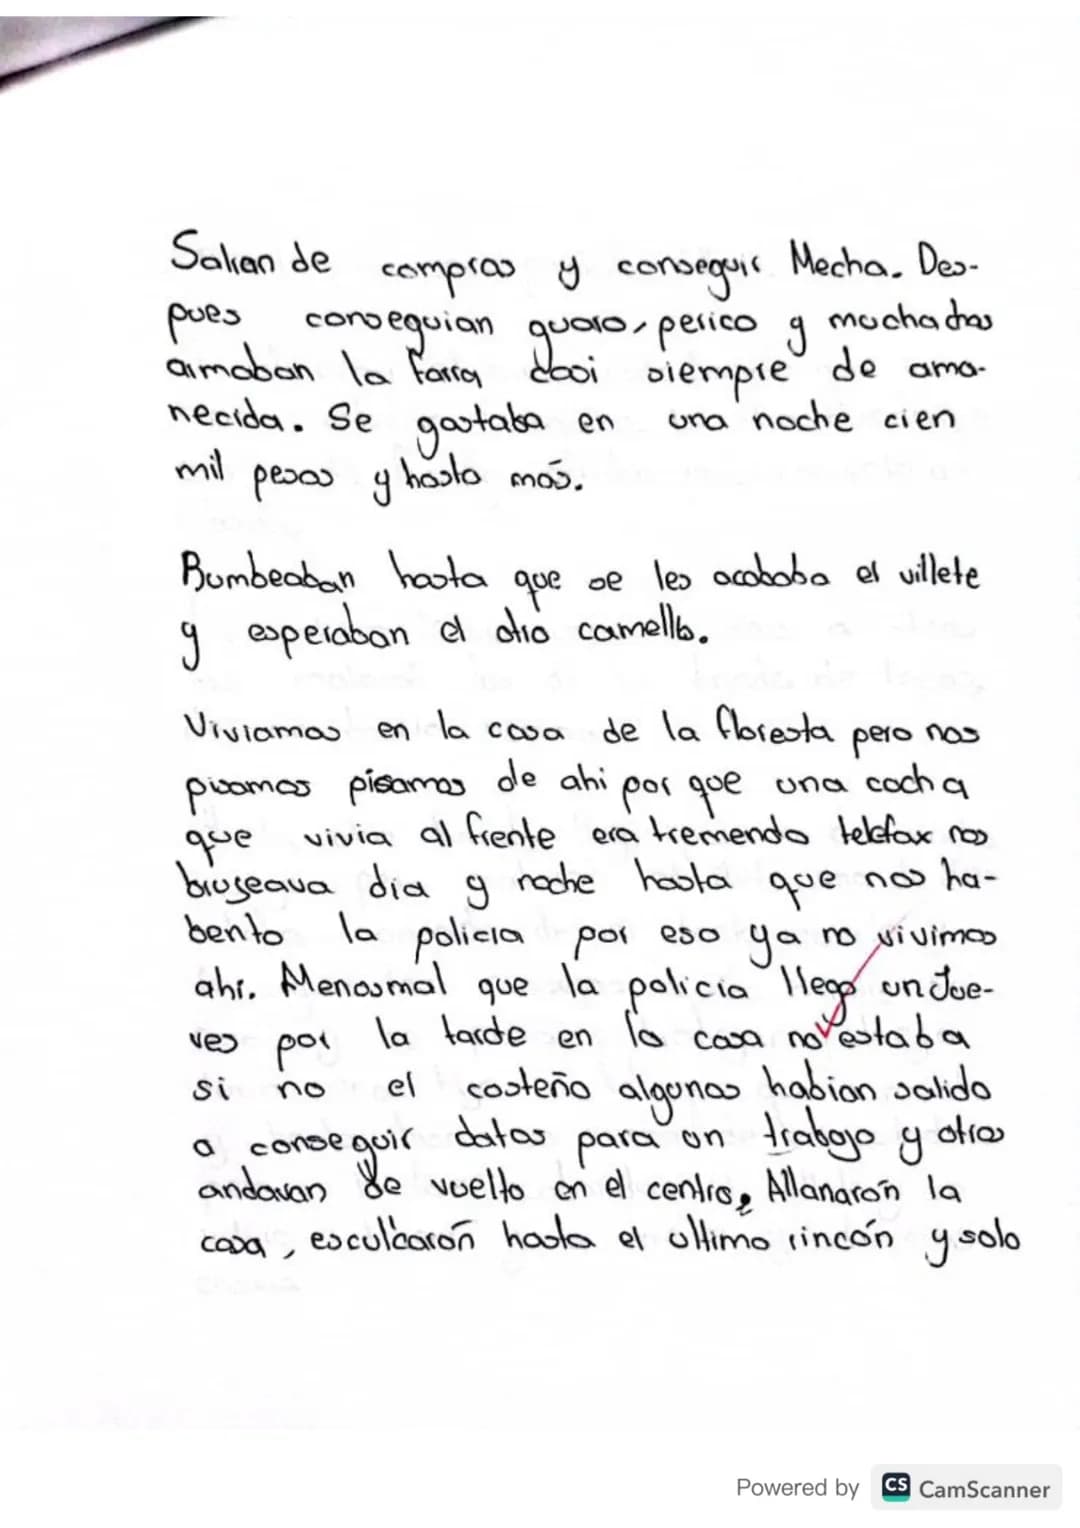 Salian de compras y conseguir Mecha. Des-
pues conseguian guaro, perico y muchachas
armaban la farra casi siempre de ama-
necida. Se gastaba en una noche cien
mil pesos y hasta más.
Bumbeaban hasta que se les acababa el villete
y esperaban el otro camello.
Viviamos en la casa de la floresta pero nos
pisamos pisamos de ahi por que una cocha
que vivia al frente era tremendo telefax nos
bruseava dia y noche hasta que nos ha-
bento la policia por eso ya no vivimos
ahí. Menosmal que la policía llego un Jue-
ves por la tarde en la casa no estaba
si no el costeño algunos habian salido
a conseguir datos para un trabajo y otros
andavan de vuelto en el centro, Allanarón la
casa, esculcarón hasta el ultimo rincón y solo
Powered by CS CamScanner